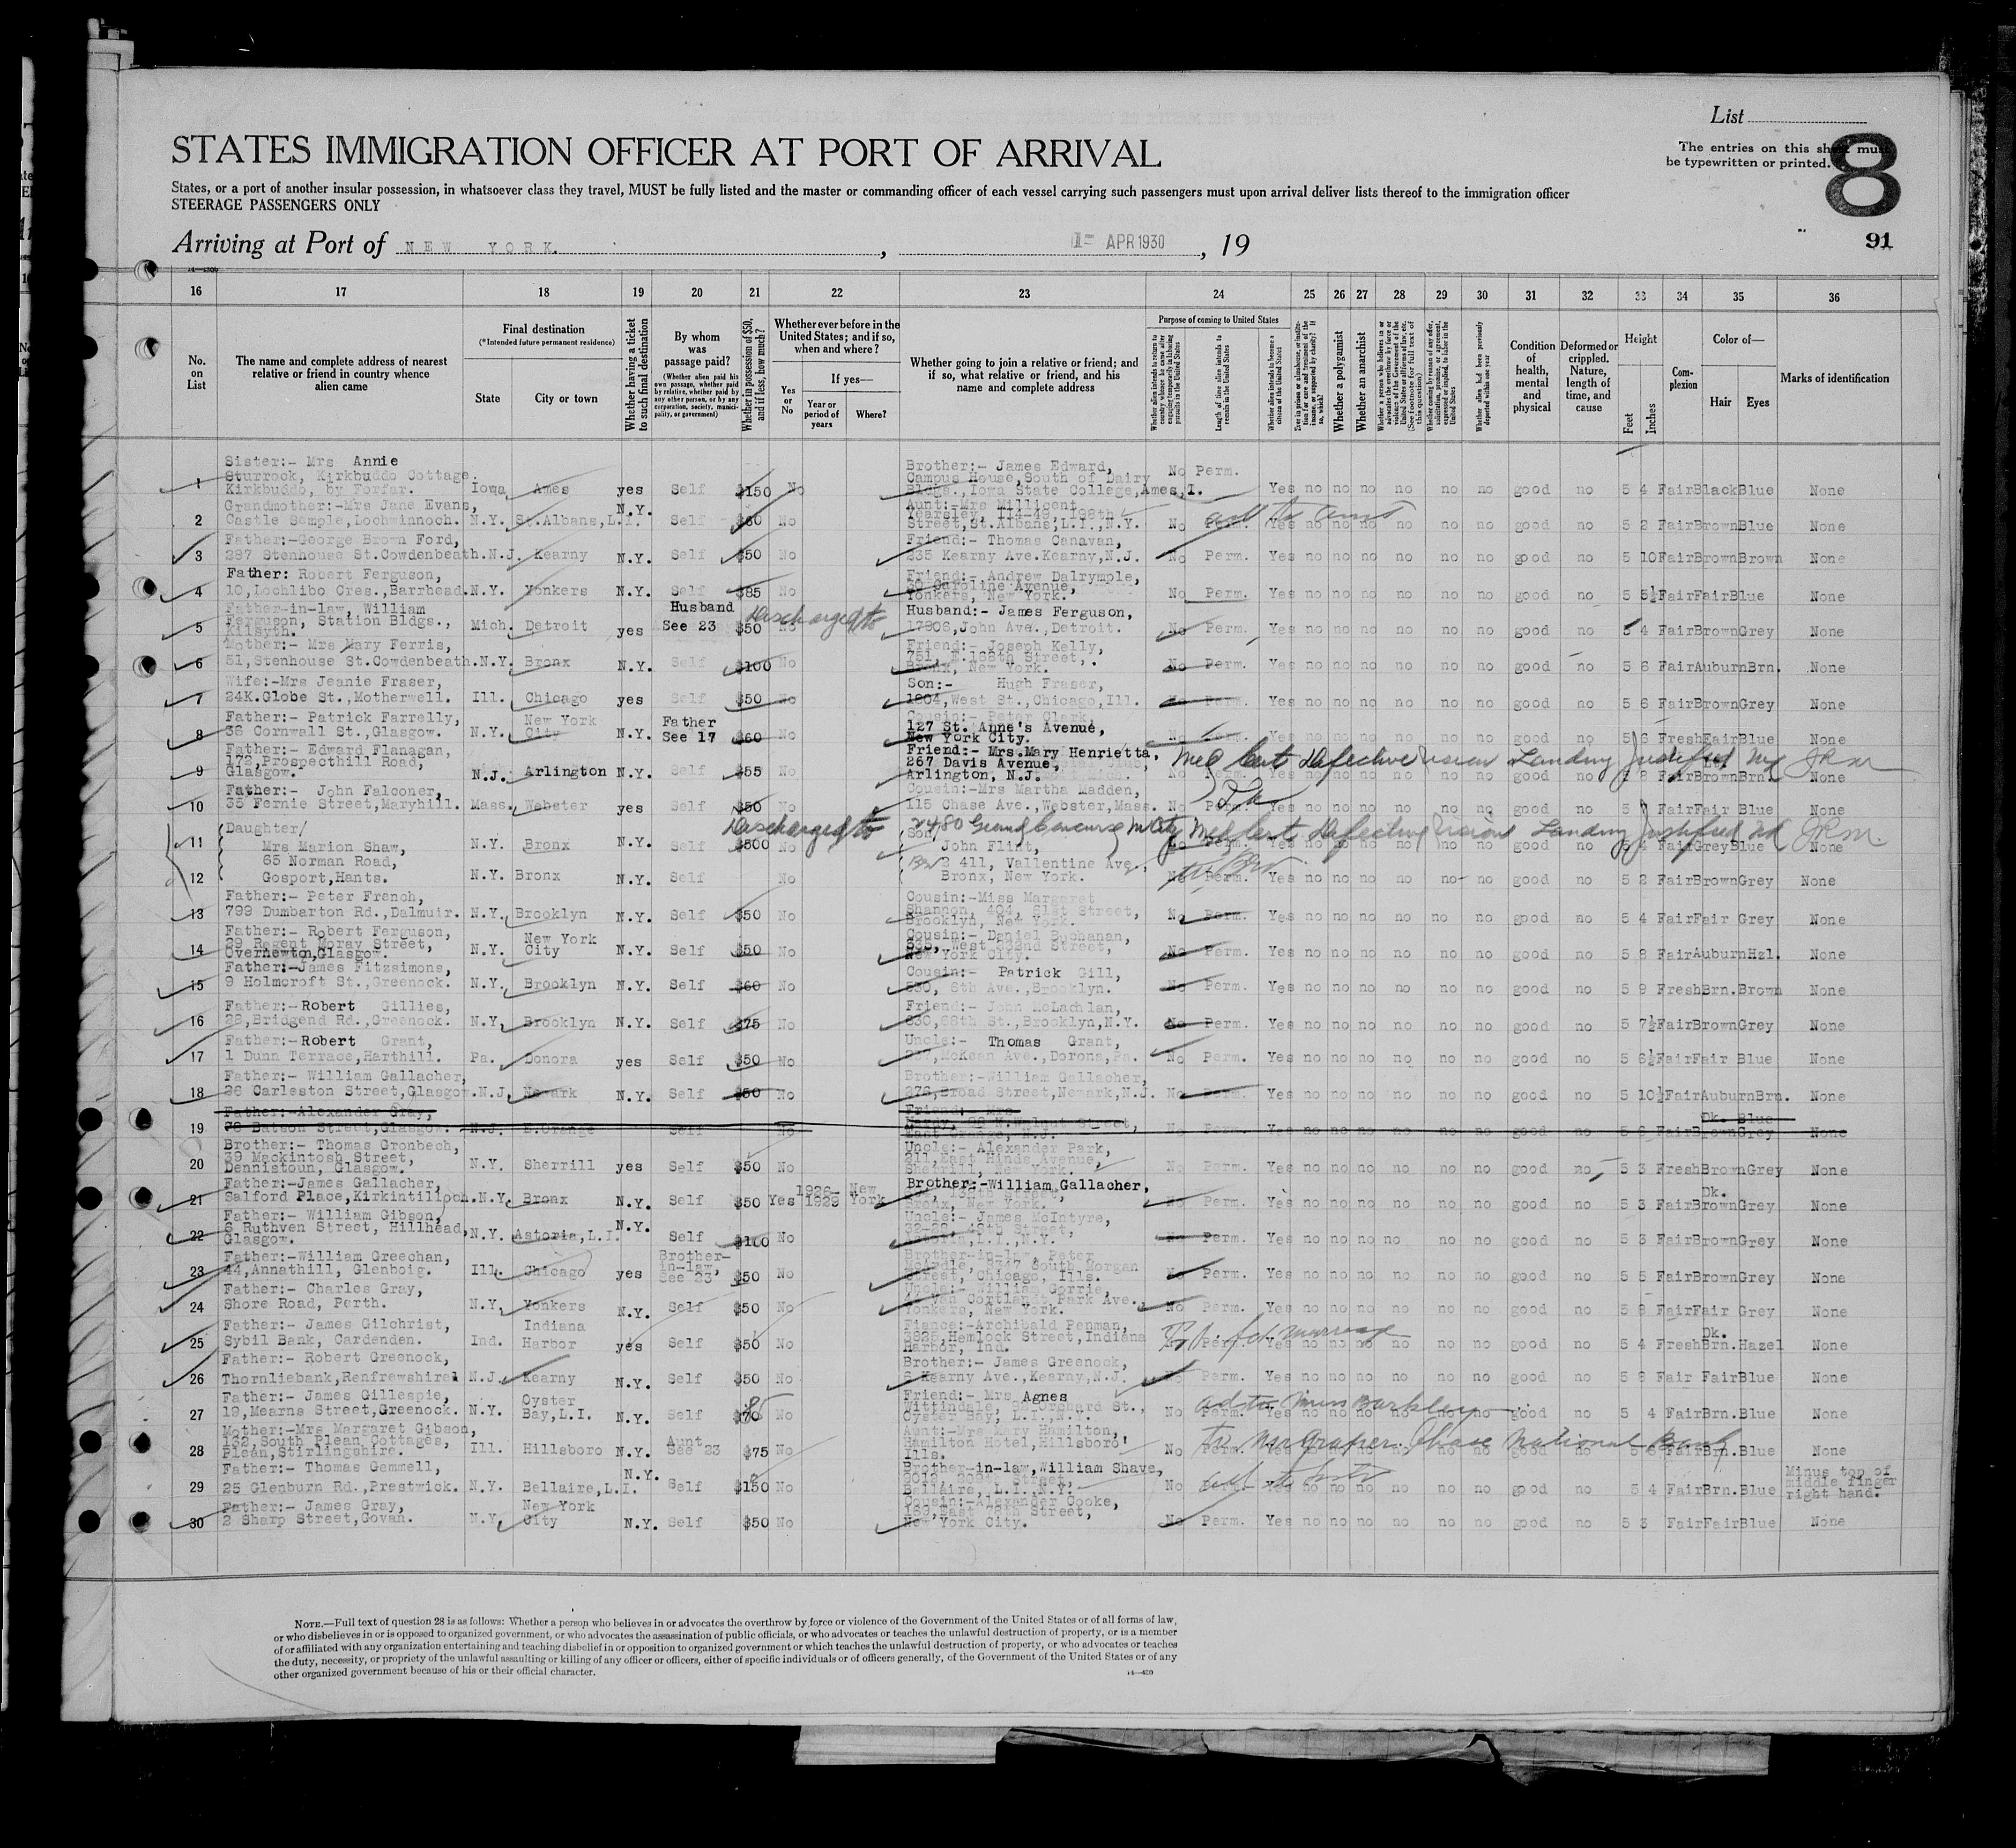 List
8
The entries on this sheet must
be typewritten or printed.
91
STATES IMMIGRATION OFFICER AT PORT OF ARRIVAL
States, or a port of another insular possession, in whatsoever class they travel, MUST be fully listed and the master or commanding officer of each vessel carrying such passengers must upon arrival deliver lists thereof to the immigration officer
STEERAGE PASSENGERS ONLY
Arriving at Port of NEW YORK. , APR 1930 , 19
16 17 18 19 20 21 22 23 24 25 26 27 28 29 30 31 32 33 34 35 36
No. on List
The name and complete address of nearest relative or friend in country whence alien came
Final destination
(*Intended future permanent residence)
State
City or town
Whether having a ticket to such final destination
By whom was passage paid?
(Whether alien paid his own passage, whether paid by relative, whether paid by any other person, or by any corporation, society, municipality, or government)
Whether in possession of $50, and if less, how much?
Whether ever before in the United States; and if so, when and where?
Yes or No
If yes—
Year or period of years
Where?
Whether going to join a relative or friend; and if so, what relative or friend, and his name and complete address
Purpose of coming to United States
Length of time alien intends to remain in the United States
Whether alien intends to become a citizen of the United States
Whether a polygamist
Whether an anarchist
Whether alien had been previously deported within one year
Condition of health, mental and physical
Deformed or crippled. Nature, length of time, and cause
Height
Feet
Inches
Complexion
Color of—
Hair
Eyes
Marks of identification
1 Sister:- Mrs Annie Sturrock, Kirkbuddo Cottage. Kirkbuddo, by Forfar. Iowa Ames yes Self $150 No Brother:- James Edward, Campus House, South of Dairy Bldgs., Iowa State College, Ames, I. No Perm. Yes no no no no no no good no 5 4 Fair Black Blue None
2 Grandmother:-Mrs Jane Evans, Castle Semple, Lochwinnoch. N.Y. St.Albans, L.I. N.Y. Self $60 No Aunt:-Mrs Millicent Yearsley, 114-49, 198th Street, St.Albans, L.I., N.Y. No Perm. Yes no no no no no no good no 5 2 Fair Brown Blue None
3 Father:-George Brown Ford, 287 Stenhouse St.Cowdenbeath. N.J. Kearny N.Y. Self $50 No Friend:- Thomas Canavan, 335 Kearny Ave.Kearny, N.J. No Perm. Yes no no no no no no good no 5 10 Fair Brown Brown None
4 Father: Robert Ferguson, 10, Lochlibo Cres., Barrhead. N.Y. Yonkers N.Y. Self $85 No Friend:- Andrew Dalrymple, 30 Caroline Avenue, Yonkers, New York. No Perm. Yes no no no no no no good no 5 5½ Fair Fair Blue None
5 Father-in-law, William Ferguson, Station Bldgs., Kilsyth. Mich. Detroit yes Husband See 23 $50 No Discharged to Husband:- James Ferguson, 17906, John Ave., Detroit. No Perm. Yes no no no no no no good no 5 4 Fair Brown Grey None
6 Mother:- Mrs Mary Ferris, 51, Stenhouse St.Cowdenbeath. N.Y. Bronx N.Y. Self $100 No Friend:- Joseph Kelly, 751, E. 168th Street, Bronx, New York. No Perm. Yes no no no no no no good no 5 6 Fair Auburn Brn. None
7 Wife:-Mrs Jeanie Fraser, 24K.Globe St., Motherwell. Ill. Chicago yes Self $50 No Son:- Hugh Fraser, 1804, West St., Chicago, Ill. No Perm. Yes no no no no no no good no 5 6 Fair Brown Grey None
8 Father:- Patrick Farrelly, 38 Cornwall St., Glasgow. N.Y. New York City N.Y. Father See 17 $60 No Cousin:- Peter Clark, 127 St. Anne's Avenue, New York City. Yes no no no no no no good no 5 6 Fresh Fair Blue None
9 Father:- Edward Flanagan, 172, Prospecthill Road, Glasgow. N.J. Arlington N.Y. Self $55 No Friend:- Mrs.Mary Henrietta, 267 Davis Avenue, Arlington, N.J. Med Cert Defective Vision Landing Justified 5 8 Fair Brown Brn. None
10 Father:- John Falconer, 35 Fernie Street, Maryhill. Mass. Webster yes Self $50 No Cousin:-Mrs Martha Madden, 115 Chase Ave., Webster, Mass. No Perm. Yes no no no no no no good no Fair Fair Blue None
11 Daughter/ Mrs Marion Shaw, 65 Norman Road, Gosport, Hants. N.Y. Bronx N.Y. Self $500 No Discharged to 2480 Grand Concourse Son/ John Flint, 2 411, Vallentine Ave, Bronx, New York. Med Cert Defective Vision Landing Justified JRM. Perm. Yes no no no no no no good no 5 4 Fair Grey Blue None
12 N.Y. Bronx N.Y. Self No No Perm. Yes no no no no no no good no 5 2 Fair Brown Grey None
13 Father:- Peter French, 799 Dumbarton Rd., Dalmuir. N.Y. Brooklyn N.Y. Self $50 No Cousin:-Miss Margaret Shannon, 404, 61st Street, Brooklyn, New York. No Perm. Yes no no no no no no good no 5 4 Fair Fair Grey None
14 Father:- Robert Ferguson, 29 Regent Moray Street, Overnewton, Glasgow. N.Y. New York City N.Y. Self $50 No Cousin:- Daniel Buchanan, West Street, New York City. No Perm. Yes no no no no no no good no 5 8 Fair Auburn Hzl. None
15 Father:-James Fitzsimons, 9 Holmcroft St., Greenock. N.Y. Brooklyn N.Y. Self $60 No Cousin:- Patrick Gill, 6th Ave., Brooklyn. No Perm. Yes no no no no no no good no 5 9 Fresh Brn. Brown None
16 Father:-Robert Gillies, 28, Bridgend Rd., Greenock. N.Y. Brooklyn N.Y. Self $75 No Friend:- John McLachlan, 68th St., Brooklyn, N.Y. No Perm. Yes no no no no no no good no 5 7½ Fair Brown Grey None
17 Father:-Robert Grant, 1 Dunn Terrace, Harthill. Pa. Donora yes Self $50 No Uncle:- Thomas Grant, McKean Ave., Dorona, Pa. No Perm. Yes no no no no no no good no 5 6½ Fair Fair Blue None
18 Father:- William Gallacher, 26 Carleston Street, Glasgow. N.J. Newark N.Y. Self $50 No Brother:-William Gallacher, 276, Broad Street, Newark, N.J. No Perm. Yes no no no no no no good no 5 10½ Fair Auburn Brn. None
19 Father:-Alexander Gray, 78 Batson Street, Glasgow. N.J. E.Orange Self No Friend:- Mrs Walnut Street, East Orange, N.J. No Perm. Yes no no no no no no good no 5 6 Fair Dk. Brown Blue Grey None
20 Brother:- Thomas Gronbech, 39 Mackintosh Street, Dennistoun, Glasgow. N.Y. Sherrill yes Self $50 No Uncle:- Alexander Park, 211, East Hinds Avenue, Sherrill, New York. No Perm. Yes no no no no no no good no 5 3 Fresh Brown Grey None
21 Father:-James Gallacher, Salford Place, Kirkintilloch. N.Y. Bronx N.Y. Self $50 Yes 1926- 1929 New York Brother:-William Gallacher, 138th Street, Bronx, New York. No Perm. Yes no no no no no no good no 5 3 Fair Dk. Brown Grey None
22 Father:- William Gibson, 6 Ruthven Street, Hillhead, Glasgow. N.Y. Astoria, L.I. N.Y. Self $100 No Uncle:- James McIntyre, 32-22, 48th Street, Astoria, L.I., N.Y. No Perm. Yes no no no no no no good no 5 3 Fair Brown Grey None
23 Father:-William Greechan, 44, Annathill, Glenboig. Ill. Chicago yes Brother-in-law, See 23 $50 No Brother-in-law, Peter McArdle, 8347 South Morgan Street, Chicago, Ills. No Perm. Yes no no no no no no good no 5 5 Fair Brown Grey None
24 Father:- Charles Gray, Shore Road, Perth. N.Y. Yonkers N.Y. Self $50 No Uncle:- William Gorrie, Van Cortlandt Park Ave., Yonkers, New York. No Perm. Yes no no no no no no good no 5 8 Fair Fair Grey None
25 Father:- James Gilchrist, Sybil Bank, Cardenden. Ind. Indiana Harbor yes Self $50 No Fiance:-Archibald Penman, 3825, Hemlock Street, Indiana Harbor, Ind. marriage Perm. Yes no no no no no no good no 5 4 Fresh Dk. Brn. Hazel None
26 Father:- Robert Greenock, Thornliebank, Renfrewshire. N.J. Kearny N.Y. Self $50 No Brother:- James Greenock, 6 Kearny Ave., Kearny, N.J. No Perm. Yes no no no no no no good no 5 8 Fair Fair Blue None
27 Father:- James Gillespie, 19, Mearns Street, Greenock. N.Y. Oyster Bay, L.I. N.Y. Self $70 No Friend:- Mrs Agnes Wittindale, Orchard St., Oyster Bay, L.I., N.Y. No ad to Miss Barkley Perm. Yes no no no no no no good no 5 4 Fair Brn. Blue None
28 Mother:-Mrs Margaret Gibson, 132, South Plean Cottages, Plean, Stirlingshire. Ill. Hillsboro N.Y. Aunt See 23 $75 No Aunt:-Mrs Mary Hamilton, Hamilton Hotel, Hillsboro, Ills. No To Mr Draper Chase National Bank Fair Brn. Blue None
29 Father:- Thomas Gemmell, 25 Glenburn Rd., Prestwick. N.Y. Bellaire, L.I. N.Y. Self $150 No Brother-in-law, William Shave, Street, Bellaire, L.I., N.Y. No Yes no no no no no no good no 5 4 Fair Brn. Blue Minus top of middle finger right hand.
30 Father:- James Gray, 2 Sharp Street, Govan. N.Y. New York City N.Y. Self $50 No Cousin:-Alexander Cooke, 169, East Street, New York City. No Perm. Yes no no no no no no good no 5 3 Fair Fair Blue None
NOTE.—Full text of question 28 is as follows: Whether a person who believes in or advocates the overthrow by force or violence of the Government of the United States or of all forms of law,
or who disbelieves in or is opposed to organized government, or who advocates the assassination of public officials, or who advocates or teaches the unlawful destruction of property, or is a member
of or affiliated with any organization entertaining and teaching disbelief in or opposition to organized government or which teaches the unlawful destruction of property, or who advocates or teaches
the duty, necessity, or propriety of the unlawful assaulting or killing of any officer or officers, either of specific individuals or of officers generally, of the Government of the United States or of any
other organized government because of his or their official character.